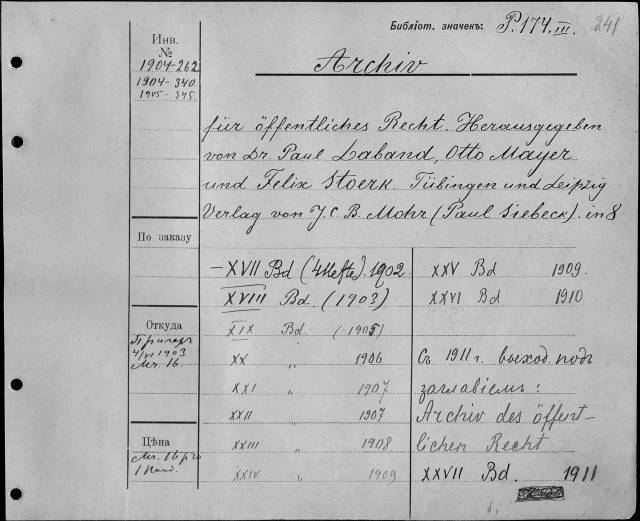 Библіот. значекъ: P. 174. III. 241
Инв.
№
1904-262
1904-340
1905-345
Archiv
für öffentliches Recht. Herausgegeben
von Dr. Paul Laband, Otto Mayer
und Felix Stoerk. Tübingen und Leipzig
Verlag von J. C. B. Mohr (Paul Siebeck). in 8
По заказу
Откуда
4/VI 1903
Mr. 16
Цѣна
Mr. 16
– XVII Bd (4 Hefte). 1902
XVIII Bd. (1903)
XIX Bd (1905)
XX „ 1906
XXI „ 1907
XXII 1907
XXIII „ 1908
XXIV „ 1909
XXV Bd 1909.
XXVI Bd 1910
Съ 1911 г. выход. подъ
заглавіемъ:
Archiv des öffent-
lichen Recht
XXVII Bd. 1911